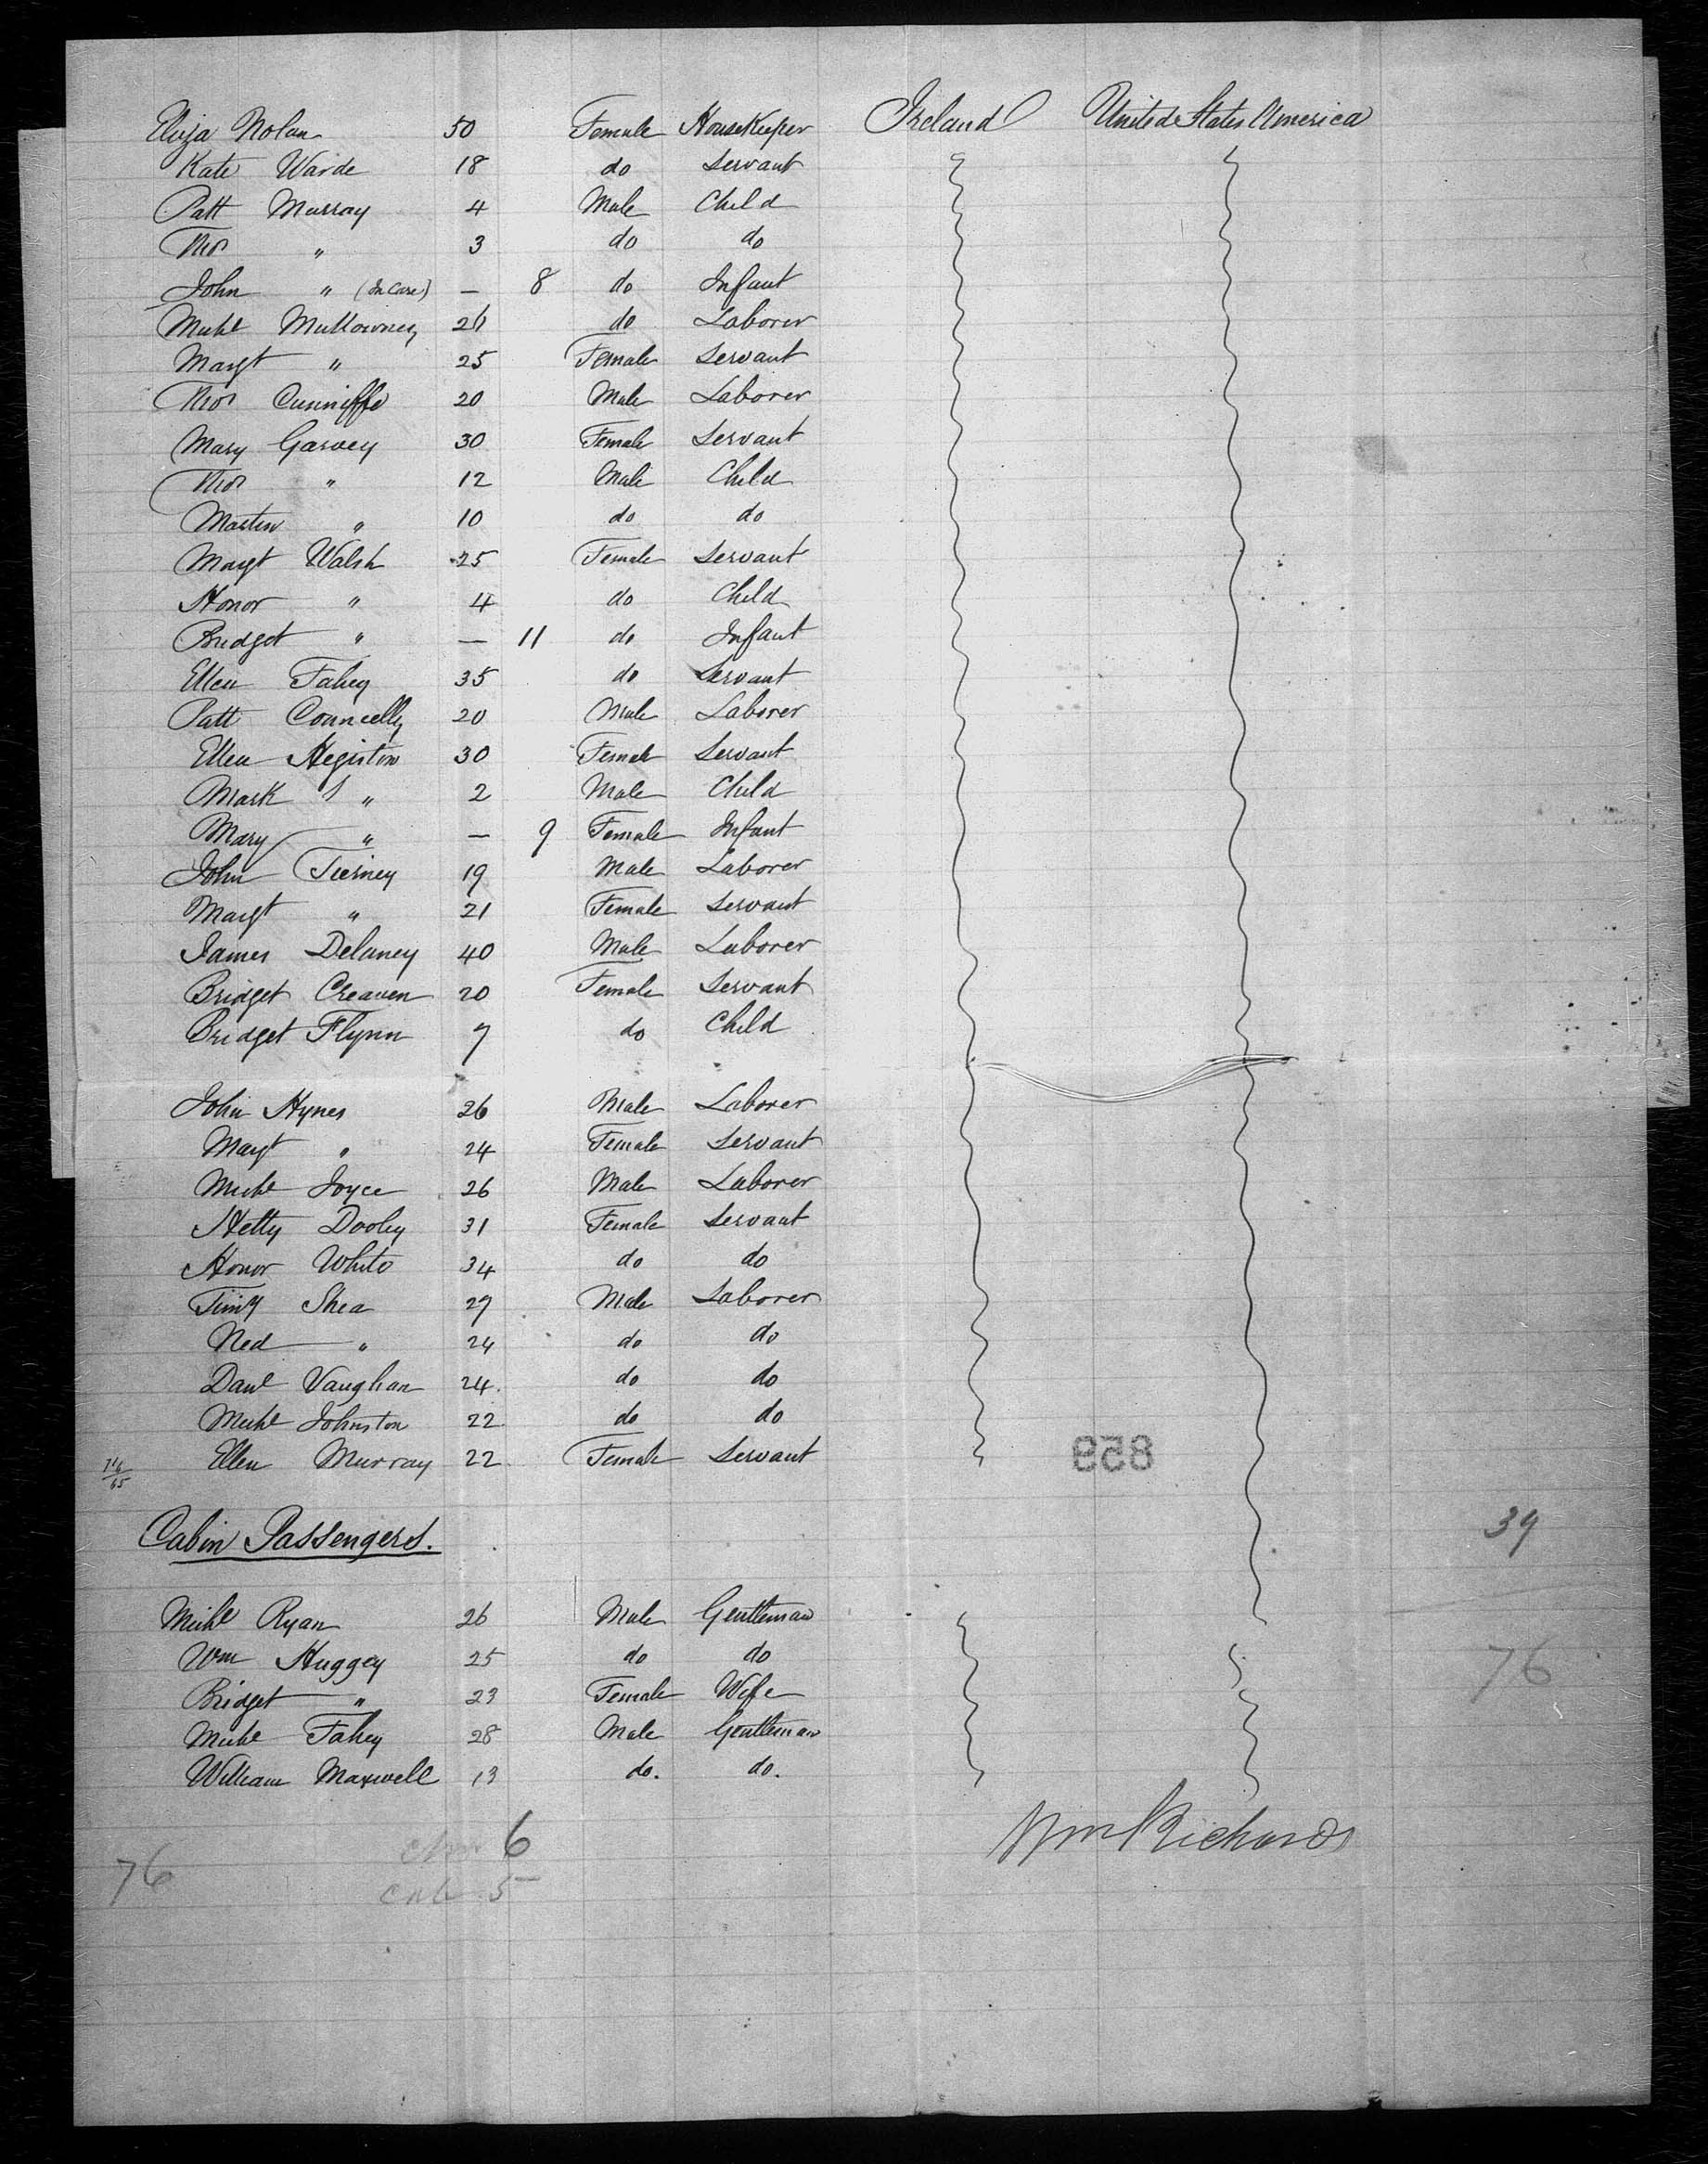 Eliza Nolan 50 Female HouseKeeper Ireland United States America
Kate Warde 18 do Servant
Patt Murray 4 Male Child
Thos " 3 do do
John " (In Care) — 8 do Infant
Michl Mullowney 26 do Laborer
Margt " 25 Female Servant
Thos Cunniffe 20 Male Laborer
Mary Garvey 30 Female Servant
Thos " 12 Male Child
Martin " 10 do do
Margt Walsh 25 Female Servant
Honor " 4 do Child
Bridget " — 11 do Infant
Ellen Fahey 35 do Servant
Patt Conneelly 20 Male Laborer
Ellen Hegistin 30 Female Servant
Mark " 2 Male Child
Mary " — 9 Female Infant
John Tierney 19 Male Laborer
Margt " 21 Female Servant
James Delaney 40 Male Laborer
Bridget Creaven 20 Female Servant
Bridget Flynn 7 do Child
John Hynes 26 Male Laborer
Margt " 24 Female Servant
Michl Joyce 26 Male Laborer
Hetty Dooley 31 Female Servant
Honor White 34 do do
Timy Shea 27 Male Laborer
Ned " 24 do do
Danl Vaughan 24 do do
Michl Johnston 22 do do
Ellen Murray 22 Female Servant
859
Cabin Passengers. 39
Michl Ryan 26 Male Gentleman
Wm Huggey 25 do do 76
Bridget " 23 Female Wife
Michl Fahey 28 Male Gentleman
William Maxwell 13 do. do.
Wm Richards
6
76 5